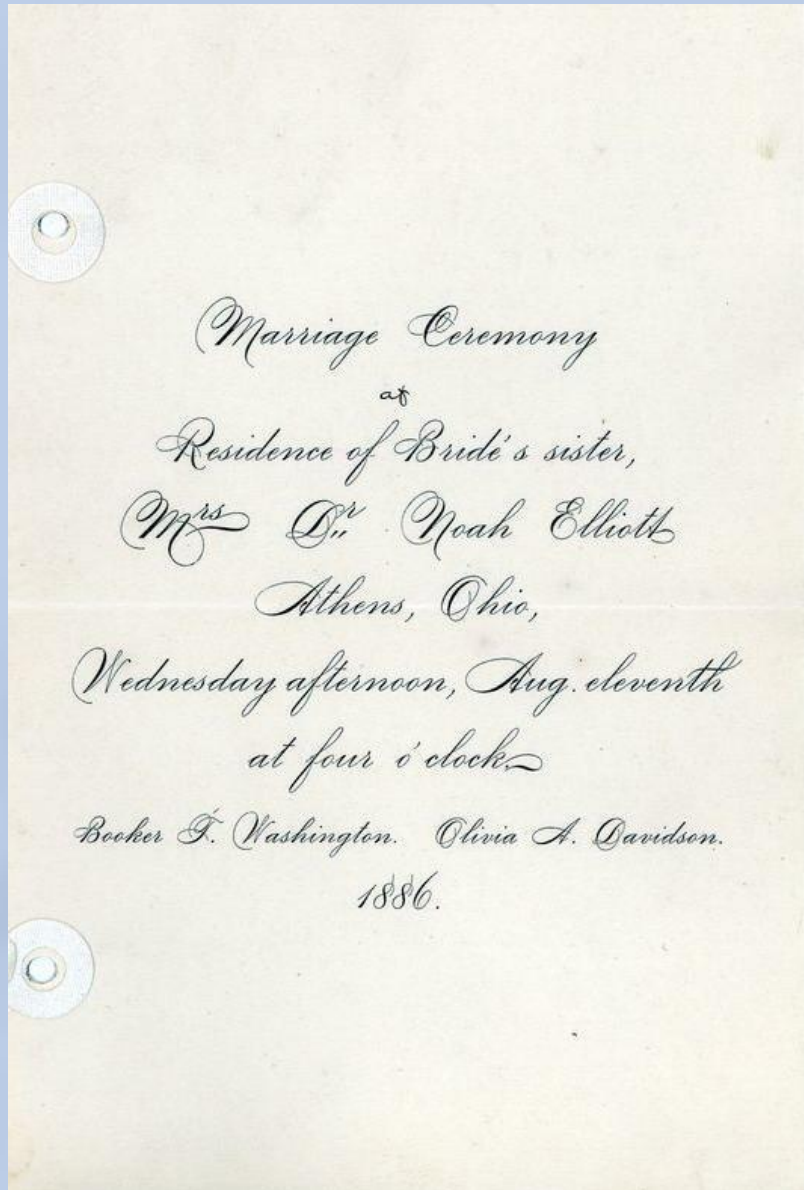 Marriage Ceremony
at
Residence of Bride's sister,
Mrs Dr. Noah Elliott
Athens, Ohio,
Wednesday afternoon, Aug. eleventh
at four o'clock.
Booker T. Washington. Olivia A. Davidson.
1886.